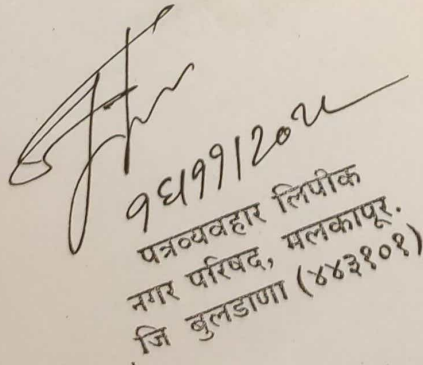 १६।११।२०२५
पत्रव्यवहार लिपीक
नगर परिषद, मलकापूर.
जि बुलडाणा (४४३१०१)